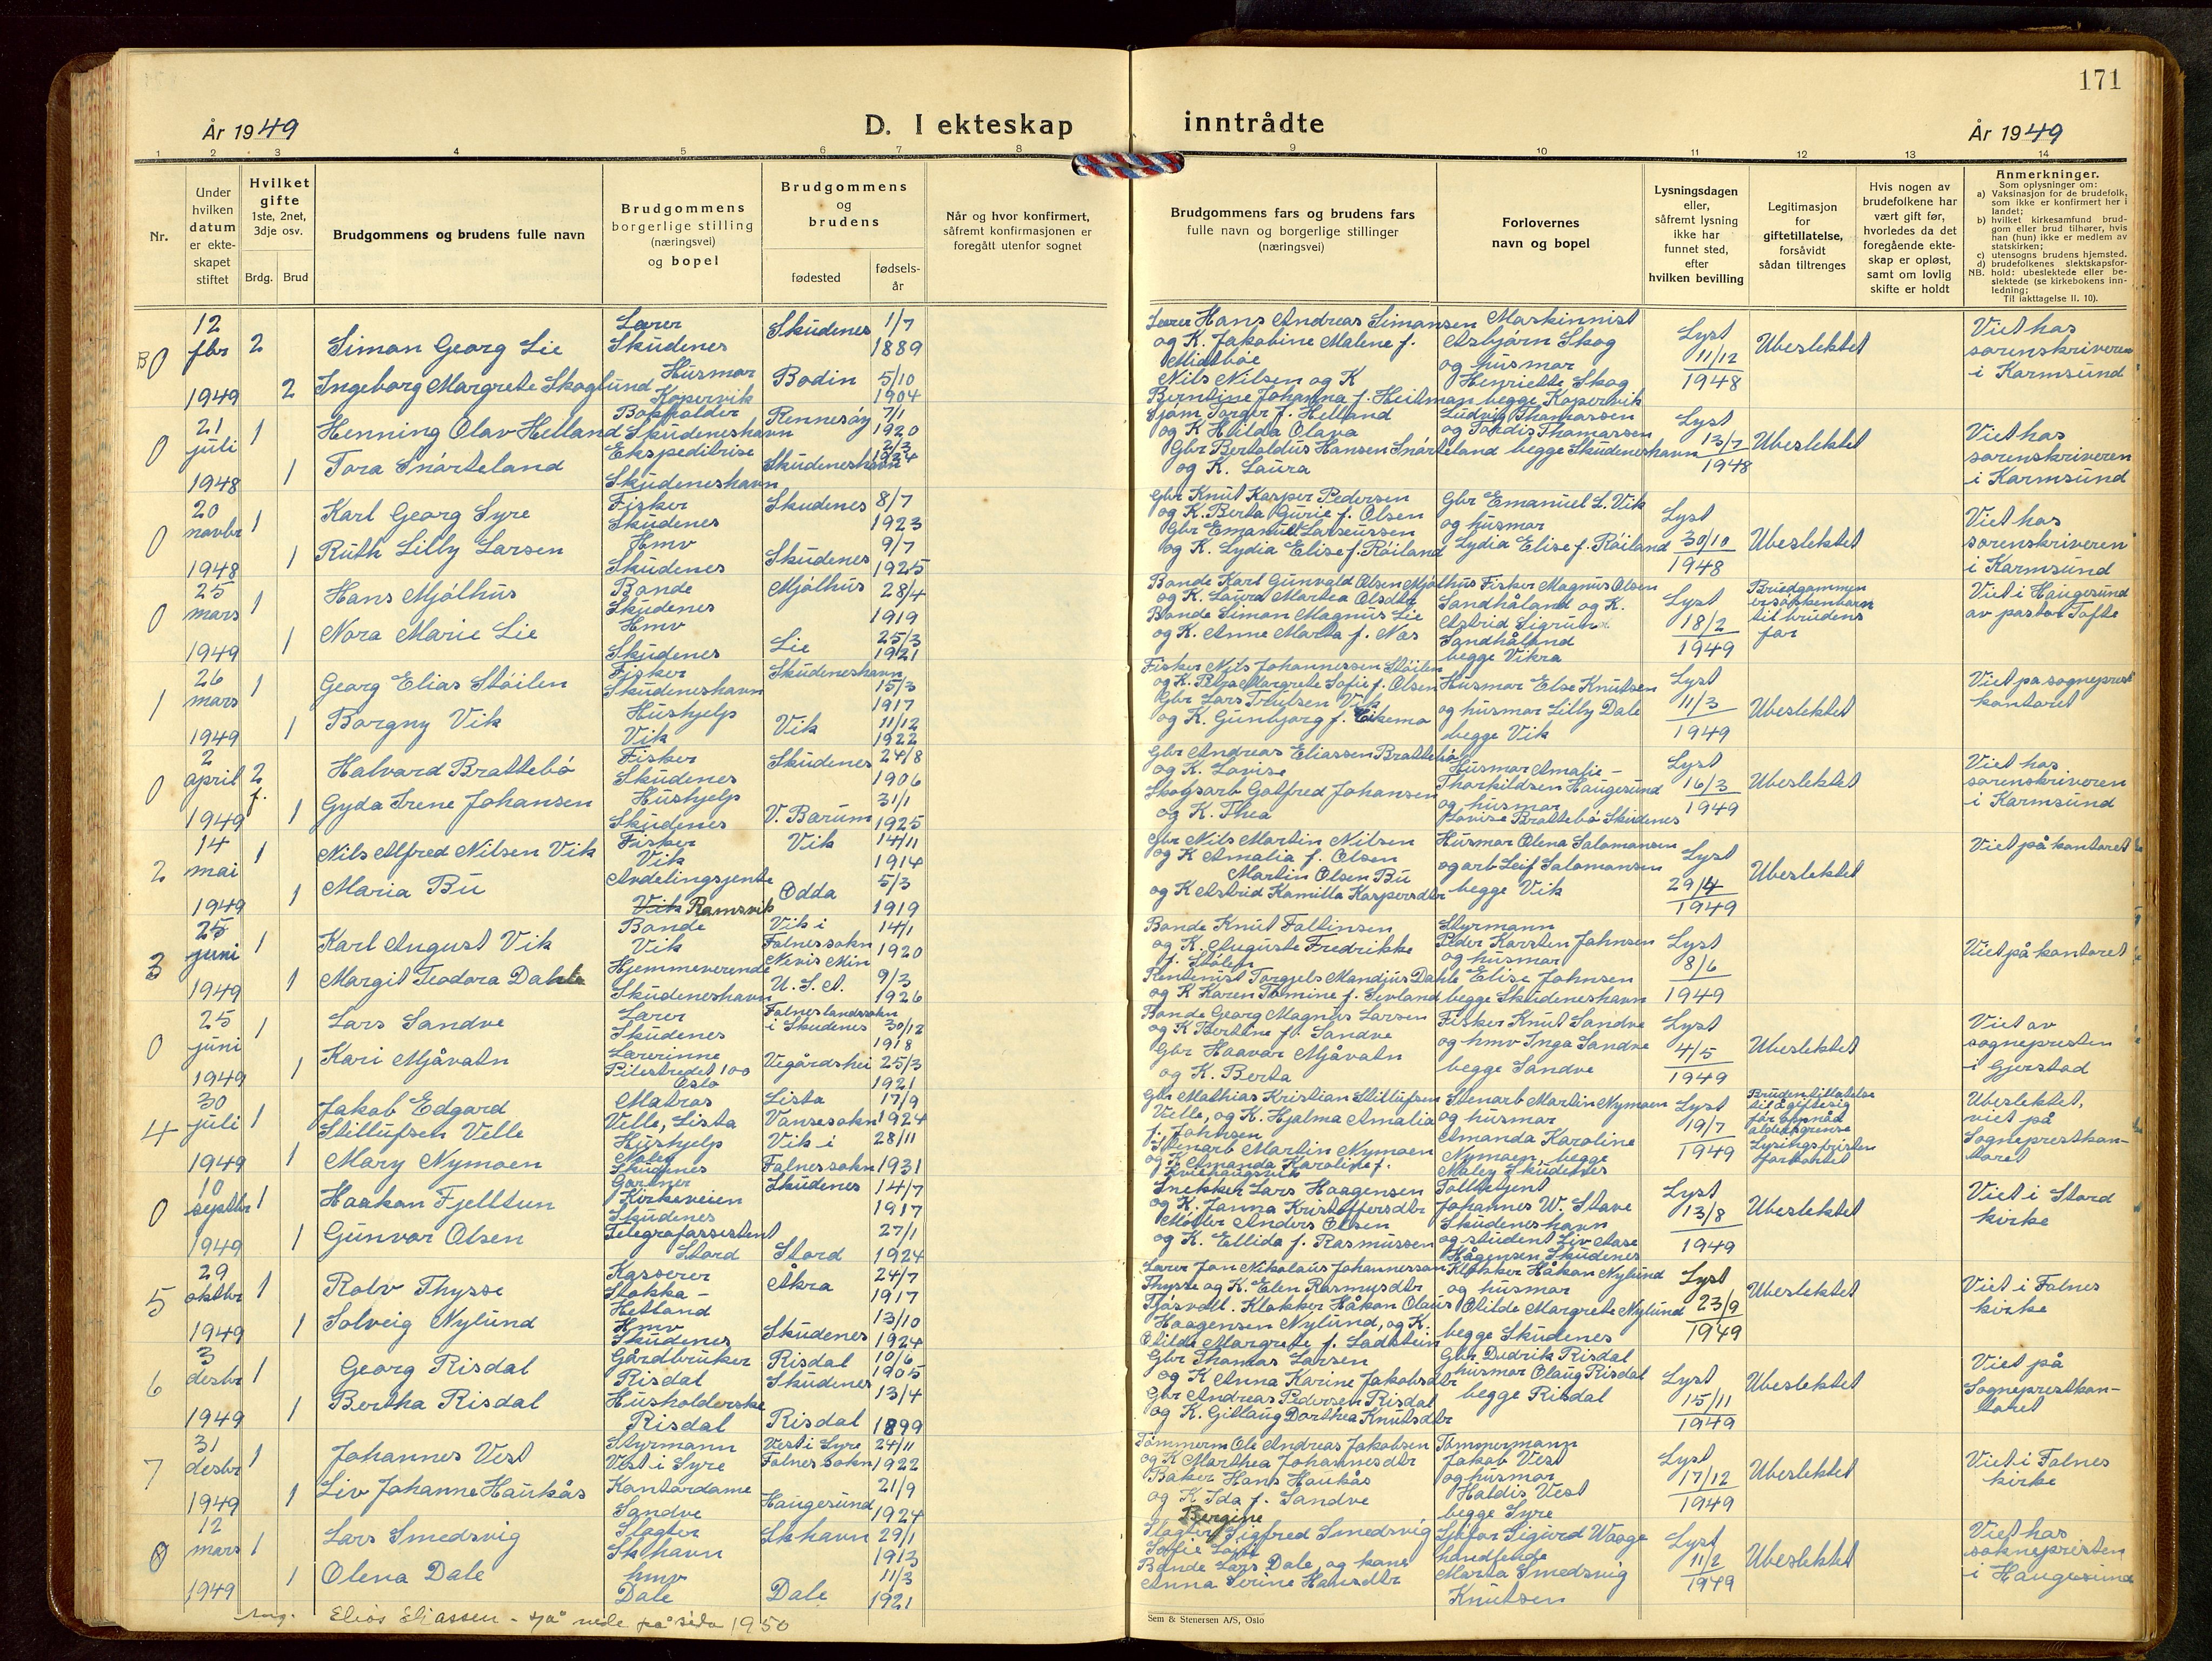 171
År 1949
D. I ekteskap inntrådte
År 1949
1 2 3 4 5 6 7 8 9 10 11 12 13 14
Nr.
Under hvilken datum er ekteskapet stiftet
Hvilket gifte 1ste, 2net, 3dje osv.
Brdg. Brud
Brudgommens og brudens fulle navn
Brudgommens borgerlige stilling (næringsvei) og bopel
Brudgommens og brudens
fødested
fødselsår
Når og hvor konfirmert, såfremt konfirmasjonen er foregått utenfor sognet
Brudgommens fars og brudens fars fulle navn og borgerlige stillinger (næringsvei)
Forlovernes navn og bopel
Lysningsdagen eller, såfremt lysning ikke har funnet sted, efter hvilken bevilling
Legitimasjon for giftetillatelse, forsåvidt sådan tiltrenges
Hvis nogen av brudefolkene har vært gift før, hvorledes da det foregående ekteskap er opløst, samt om lovlig skifte er holdt
Anmerkninger.
Som oplysninger om:
a) Vaksinasjon for de brudefolk, som ikke er konfirmert her i landet;
b) hvilket kirkesamfund brudgom eller brud tilhører, hvis han (hun) ikke er medlem av statskirken;
c) utensogns brudens hjemsted.
d) brudefolkenes slektskapsforhold: ubeslektede eller beslektede (se kirkebokens innledning;
NB. Til iakttagelse II. 10).
B 0 12 fbr 1949 2 Simon Georg Lie Lærer Skudenes Skudenes 1/7 1889
2 Ingeborg Margrete Skoglund Husmor Kopervik Bodin 5/10 1904
Lærer Hans Andreas Simonsen og K. Jakobine Malene f. Midtbøe
Nils Nilsen og K Berntine Johanna f. Heitman
Maskinnist Asbjørn Skog og husmor Henriette Skog begge Kopervik
Lyst 11/12 1948 Ubeslektet Viet hos sorenskriveren i Karmsund
0 21 juli 1948 1 Henning Olav Helland Bokholder Skudeneshavn Rennesøy 7/1 1920
1 Tora Snørteland Ekspeditrise Skudeneshavn Skudeneshavn 2/3 1924
Sjøm Torger f. Helland og K Hilda Olava
Gbr Bertoldus Hansen Snørteland og K. Laura
Ludvig Thomassen og Tordis Thomassen begge Skudeneshavn
Lyst 13/7 1948 Ubeslektet Viet hos sorenskriveren i Karmsund
0 20 novbr 1948 1 Karl Georg Syre Fisker Skudenes Skudenes 8/7 1923
1 Ruth Lilly Larsen Hmv Skudenes Skudenes 9/7 1925
Gbr Knut Kasper Pedersen og K. Berta Gurie f. Olsen
Gbr Emanuel Larseussen og K. Lydia Elise f. Røiland
Gbr Emanuel L. Vik og husmor Lydia Elise f. Røiland
Lyst 30/10 1948 Ubeslektet Viet hos sorenskriveren i Karmsund
0 25 mars 1949 1 Hans Mjølhus Bonde Skudenes Mjølhus 28/4 1919
1 Nora Marie Lie Hmv Skudenes Lie 25/3 1921
Bonde Karl Gunvald Olsen Mjølhus og K. Laura Martea Olsdtr
Bonde Simon Magnus Lie og K. Anne Marta f. Nos
Fisker Magnus Olsen Sandhåland og K. Astrid Sigrun Sandhåland begge Vikra
Lyst 18/2 1949 Brudgommen er søskenbarn til brudens far Viet i Haugesund av pastor Tofte
1 26 mars 1949 1 Georg Elias Støilen Fisker Skudeneshavn Skudeneshavn 15/3 1917
1 Borgny Vik Hushjelp Vik Vik 11/12 1922
Fisker Nils Johannessen Støilen og K. Petra Margrete Sofie f. Olsen
Gbr Lars Trulsen Vik og K. Gunbjorg f. Eikemo
Husmor Else Knutsen og husmor Lilly Dale begge Vik
Lyst 11/3 1949 Ubeslektet Viet på sogneprest kontoret
0 2 april 1949 2 f. Halvard Brattebø Fisker Skudenes Skudenes 24/8 1906
1 Gyda Irene Johansen Hushjelp Skudenes V. Bærum 31/1 1925
Gbr Andreas Eliassen Brattebø og K. Lovise
Skogsarb Gotfred Johansen og K. Thea
Husmor Amalie Thorkildsen Haugesund og husmor Lovise Brattebø Skudenes
Lyst 16/3 1949 Ubeslektet Viet hos sorenskriveren i Karmsund
2 14 mai 1949 1 Nils Alfred Nilsen Vik Fisker Vik Vik 14/11 1914
1 Maria Bu Avdelingsjente Vik Ramsvik Odda 5/3 1919
Gbr Nils Martin Nilsen og K Amalia f. Olsen
Martin Olsen Bu og K Astrid Kamilla Kaspersdtr
Husmor Olena Salomonsen og arb Leif Salomonsen begge Vik
Lyst 29/4 1949 Ubeslektet Viet på kontoret
3 25 juni 1949 1 Karl August Vik Bonde Vik Vik i Falnes sokn 14/1 1920
1 Margit Teodora Dahle Hjemmeverende Skudeneshavn Nevis Min U.S.A. 9/3 1926
Bonde Knut Faltinsen og K. Auguste Fredrikke f. Stølen
Rentenist Torgjels Mandius Dahle og K Karen Tomine f. Sevland
Styrmann Peder Karsten Johnsen og husmor Elise Johnsen begge Skudeneshavn
Lyst 8/6 1949 Viet på kontoret
0 25 juni 1949 1 Lars Sandve Lærer Skudenes Falnes landssokn i Skudenes 30/12 1918
1 Kari Mjåvatn Lærerinne Pilestredet 100 Oslo Vegårdshei 25/3 1921
Bonde Georg Magnus Larsen og K Bertine f. Sandve
Gbr Haavar Mjåvatn og K. Berta
Fisker Knut Sandve og hmv Inga Sandve begge Sandve
Lyst 4/5 1949 Ubeslektet Viet av sognepresten i Gjerstad
4 30 juli 1949 1 Jakob Edgard Stillufsen Velle Matros Velle, Lista Lista Vansesokn 17/9 1924
1 Mary Nymoen Hushjelp Maley Skudenes Vik i Falnessokn 28/11 1931
Gbr Mathias Kristian Stillufsen Velle, og K. Hjalma Amalia f. Johnsen
Stenarb Martin Nymoen og K. Amanda Karoline f.
Stenarb Martin Nymoen og husmor Amanda Karoline Nymoen, begge Maley Skudenes
Lyst 19/7 1949 Bruden tillatelse til å gifte sig før oppnåd aldersgrense Lysingsfristen forkortet Ubeslektet, viet på Sogneprestkontoret
0 10 septbr 1949 1 Haakon Fjelltun Gartner Kirkeveien Skudenes Skudenes 14/7 1917
1 Gunvor Olsen Telegrafassistent Stord Stord 27/1 1924
Snekker Lars Haagensen og K. Janna Kristoffersdtr
Møller Anders Olsen og K. Ellida f. Rasmussen
Tollbetjent Johannes W. Stave Skudeneshavn og student Liv Aase Hågensen Skudenes
Lyst 13/8 1949 Ubeslektet Viet i Stord kirke
5 29 oktbr 1949 1 Rolv Thysse Kasserer Stokka - Hetland Åkra 24/7 1917
1 Solveig Nylund Hmv Skudenes Skudenes 13/10 1924
Lærer Jon Nikolaus Johannesson Thysse og K. Elen Rasmusdtr Tjøsvoll.
Klokker Håkon Olaus Haagensen Nylund, og K. Otilde Margrete f. Ladstein
Klokker Håkon Nylund og husmor Otilde Margrete Nylund begge Skudenes
Lyst 23/9 1949 Ubeslektet Viet i Falnes kirke
6 3 desbr 1949 1 Georg Risdal Gårdbruker Risdal Risdal Skudenes 10/6 1905
1 Bertha Risdal Husholderske Risdal Risdal 13/4 1899
Gbr Thomas Larsen og K Anna Karine Jakobsdtr
Gbr Andreas Pedersen Risdal og K. Gitlaug Dorthea Knutsdtr
Gbr Dedrik Risdal husmor Olaug Risdal begge Risdal
Lyst 15/11 1949 Ubeslektet Viet på Sogneprestkontoret
7 31 desbr 1949 1 Johannes Vest Styrmann Vest i Syre Vest i Syre Falnes sokn 24/11 1922
1 Liv Johanne Haukås Kontordame Sandve Haugesund 21/9 1924
Tømmerm Ole Andreas Jakobsen og K Marthea Johannesdtr
Baker Hans Haukås og K Ida f. Sandve
Tømmermann Jakob Vest og husmor Haldis Vest begge Syre
Lyst 17/12 1949 Ubeslektet Viet i Falnes kirke
0 12 mars 1949 1 Lars Smedsvig Slagter Skhavn Skhavn 29/1 1913
1 Olena Dale hmv Dale Dale 11/3 1921
Slagter Sigfred Smedsvig Bergine Sofie
Bonde Lars Dale, og kone Anna Serine Hansdtr
Sjåfør Sigurd Waage handlende Marta Smedsvig Knutsen
Lyst 11/2 1949 Ubeslektet Viet hos soknepresten i Haugesund
Elias Eliassen - sjå nede på sida 1950
Sem & Stenersen A/S, Oslo